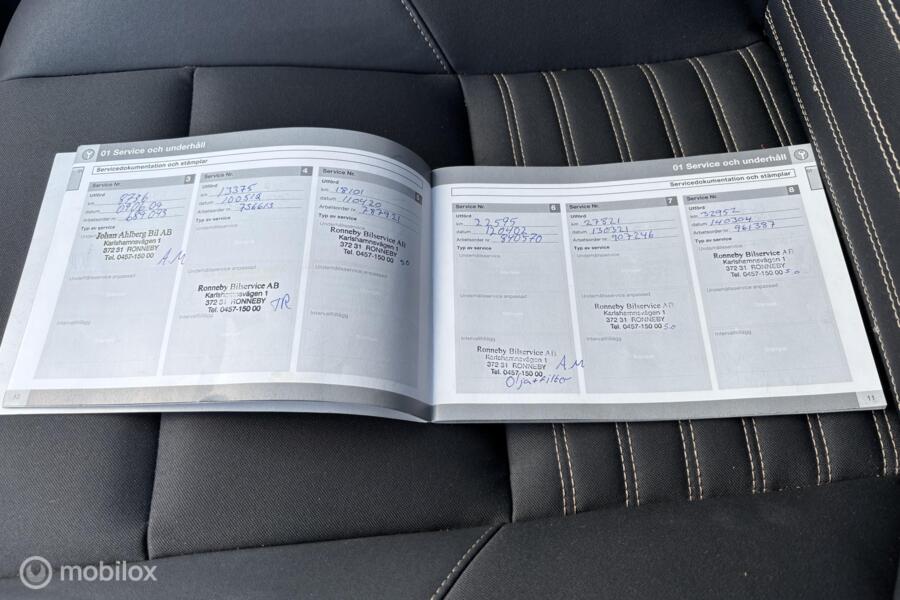 01 Service och underhåll
Servicedokumentation och stämplar
Service Nr. 3
Utförd
km
datum
Arbetsorder nr 689093
Typ av service
Johan Ahlberg Bil AB
Karlshamnsvägen 1
372 31 RONNEBY
Tel. 0457-150 00
AM
Underhållsservice anpassad
Intervalltillägg
10
Service Nr. 4
Utförd
km 13375
datum 100512
Arbetsorder nr 736613
Typ av service
Underhållsservice
Underhållsservice anpassad
Ronneby Bilservice AB
Karlshamnsvägen 1
372 31 RONNEBY
Tel. 0457-150 00
JR
Intervalltillägg
Service Nr. 5
Utförd
km 18101
datum 110420
Arbetsorder nr 787921
Typ av service
Ronneby Bilservice AB
Karlshamnsvägen 1
372 31 RONNEBY
Tel. 0457-150 00
Underhållsservice anpassad
Intervalltillägg
01 Service och underhåll
Servicedokumentation och stämplar
Service Nr. 6
Utförd
km 22595
datum 120402
Arbetsorder nr 840570
Typ av service
Underhållsservice
Underhållsservice anpassad
Intervalltillägg
Ronneby Bilservice AB
Karlshamnsvägen 1
372 31 RONNEBY
Tel. 0457-150 00
AM
Olja+Filter
Service Nr. 7
Utförd
km 27821
datum 130321
Arbetsorder nr 907246
Typ av service
Underhållsservice
Underhållsservice anpassad
Ronneby Bilservice AB
Karlshamnsvägen 1
372 31 RONNEBY
Tel. 0457-150 00
Intervalltillägg
Service Nr. 8
Utförd
km 32952
datum 140304
Arbetsorder nr 961387
Typ av service
Underhållsservice
Ronneby Bilservice AB
Karlshamnsvägen 1
372 31 RONNEBY
Tel. 0457-150 00
Underhållsservice anpassad
Intervalltillägg
11
mobilox